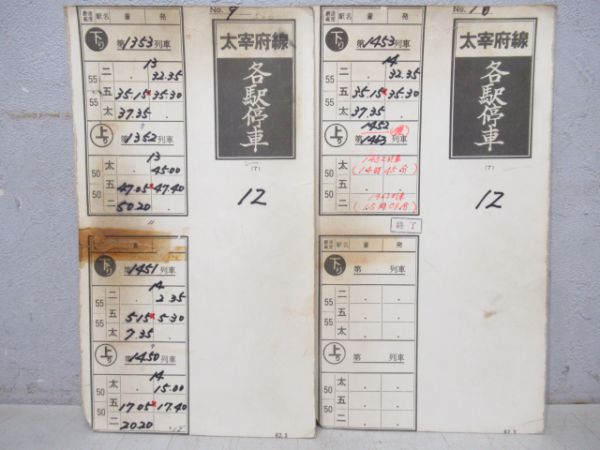 No. 9
最速
速度 駅名 着 発
下り 第1353列車
13
55 二 . 32.35
五 35.15 35.30
55 太 37.35 .
上り 第1352列車
13
太 . 45.00
50 五 47.05 47.40
50 二 50.20
太宰府線
各駅停車
(下)
12
下り 第1451列車
14
55 二 . 2.35
五 5.15 5.30
55 太 7.35 .
上り 第1450列車
14
太 . 15.00
50 五 17.05 17.40
50 二 20.20
62.3
No. 10
駅名 着 発
下り 第1453列車
14
55 二 . 32.35
五 35.15 35.30
55 太 37.35 .
1452
上り 第1463列車
太 1452列車
50 (14時45分)
五
50 二
終了
太宰府線
各駅停車
(下)
12
下り 第 列車
55 二 . .
五 . .
55 太 . .
上り 第 列車
太 . .
50 五 . .
50 二 . .
62.3